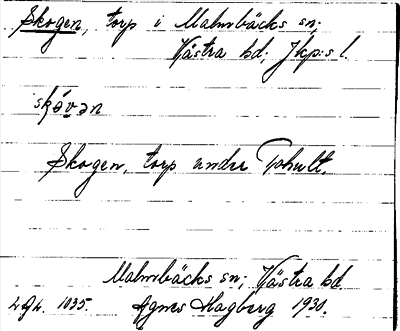 Skogen, torp i Malmbäcks sn;
Västra hd; Jkp:s l.
skó̱vən
Skogen, torp under Tohult.
Malmbäcks sn; Västra hd.
Agnes Hagberg 1930.
1035.